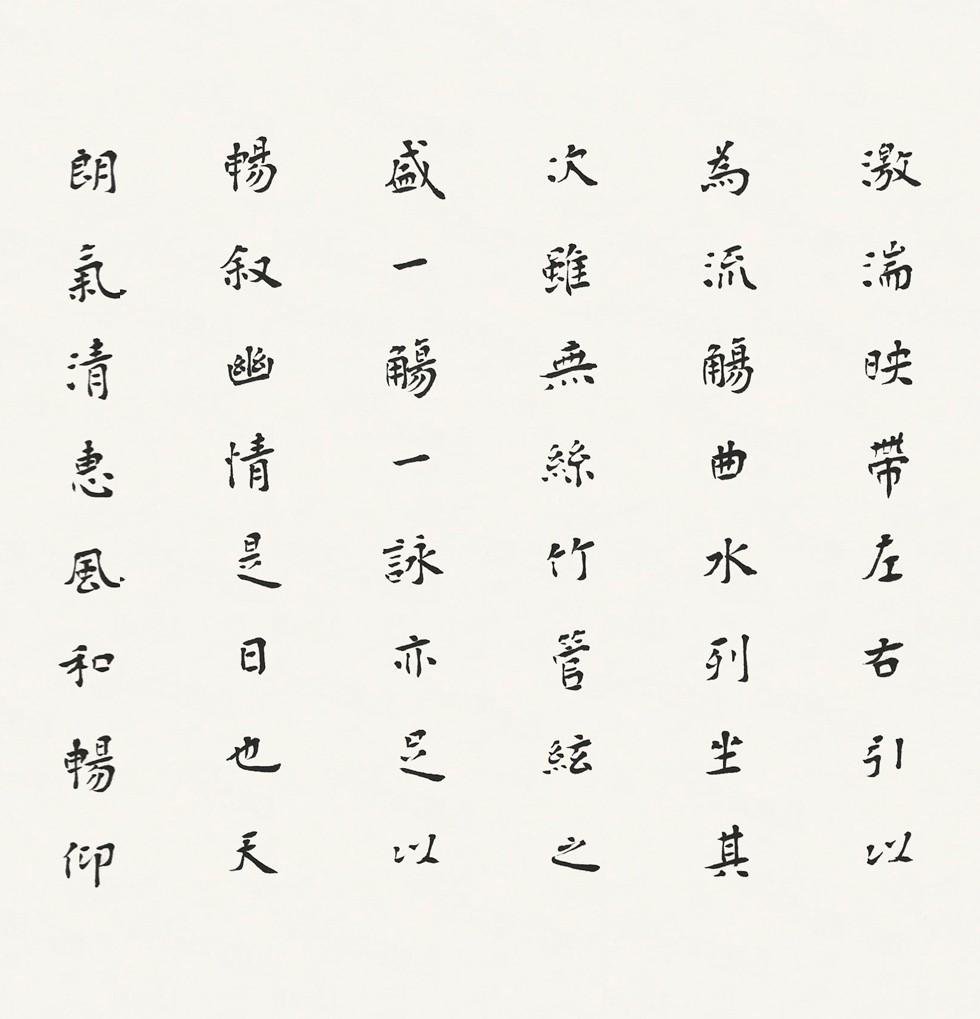 激湍映帶左右引以
為流觴曲水列坐其
次雖無絲竹管絃之
盛一觴一詠亦足以
暢叙幽情是日也天
朗氣清惠風和暢仰